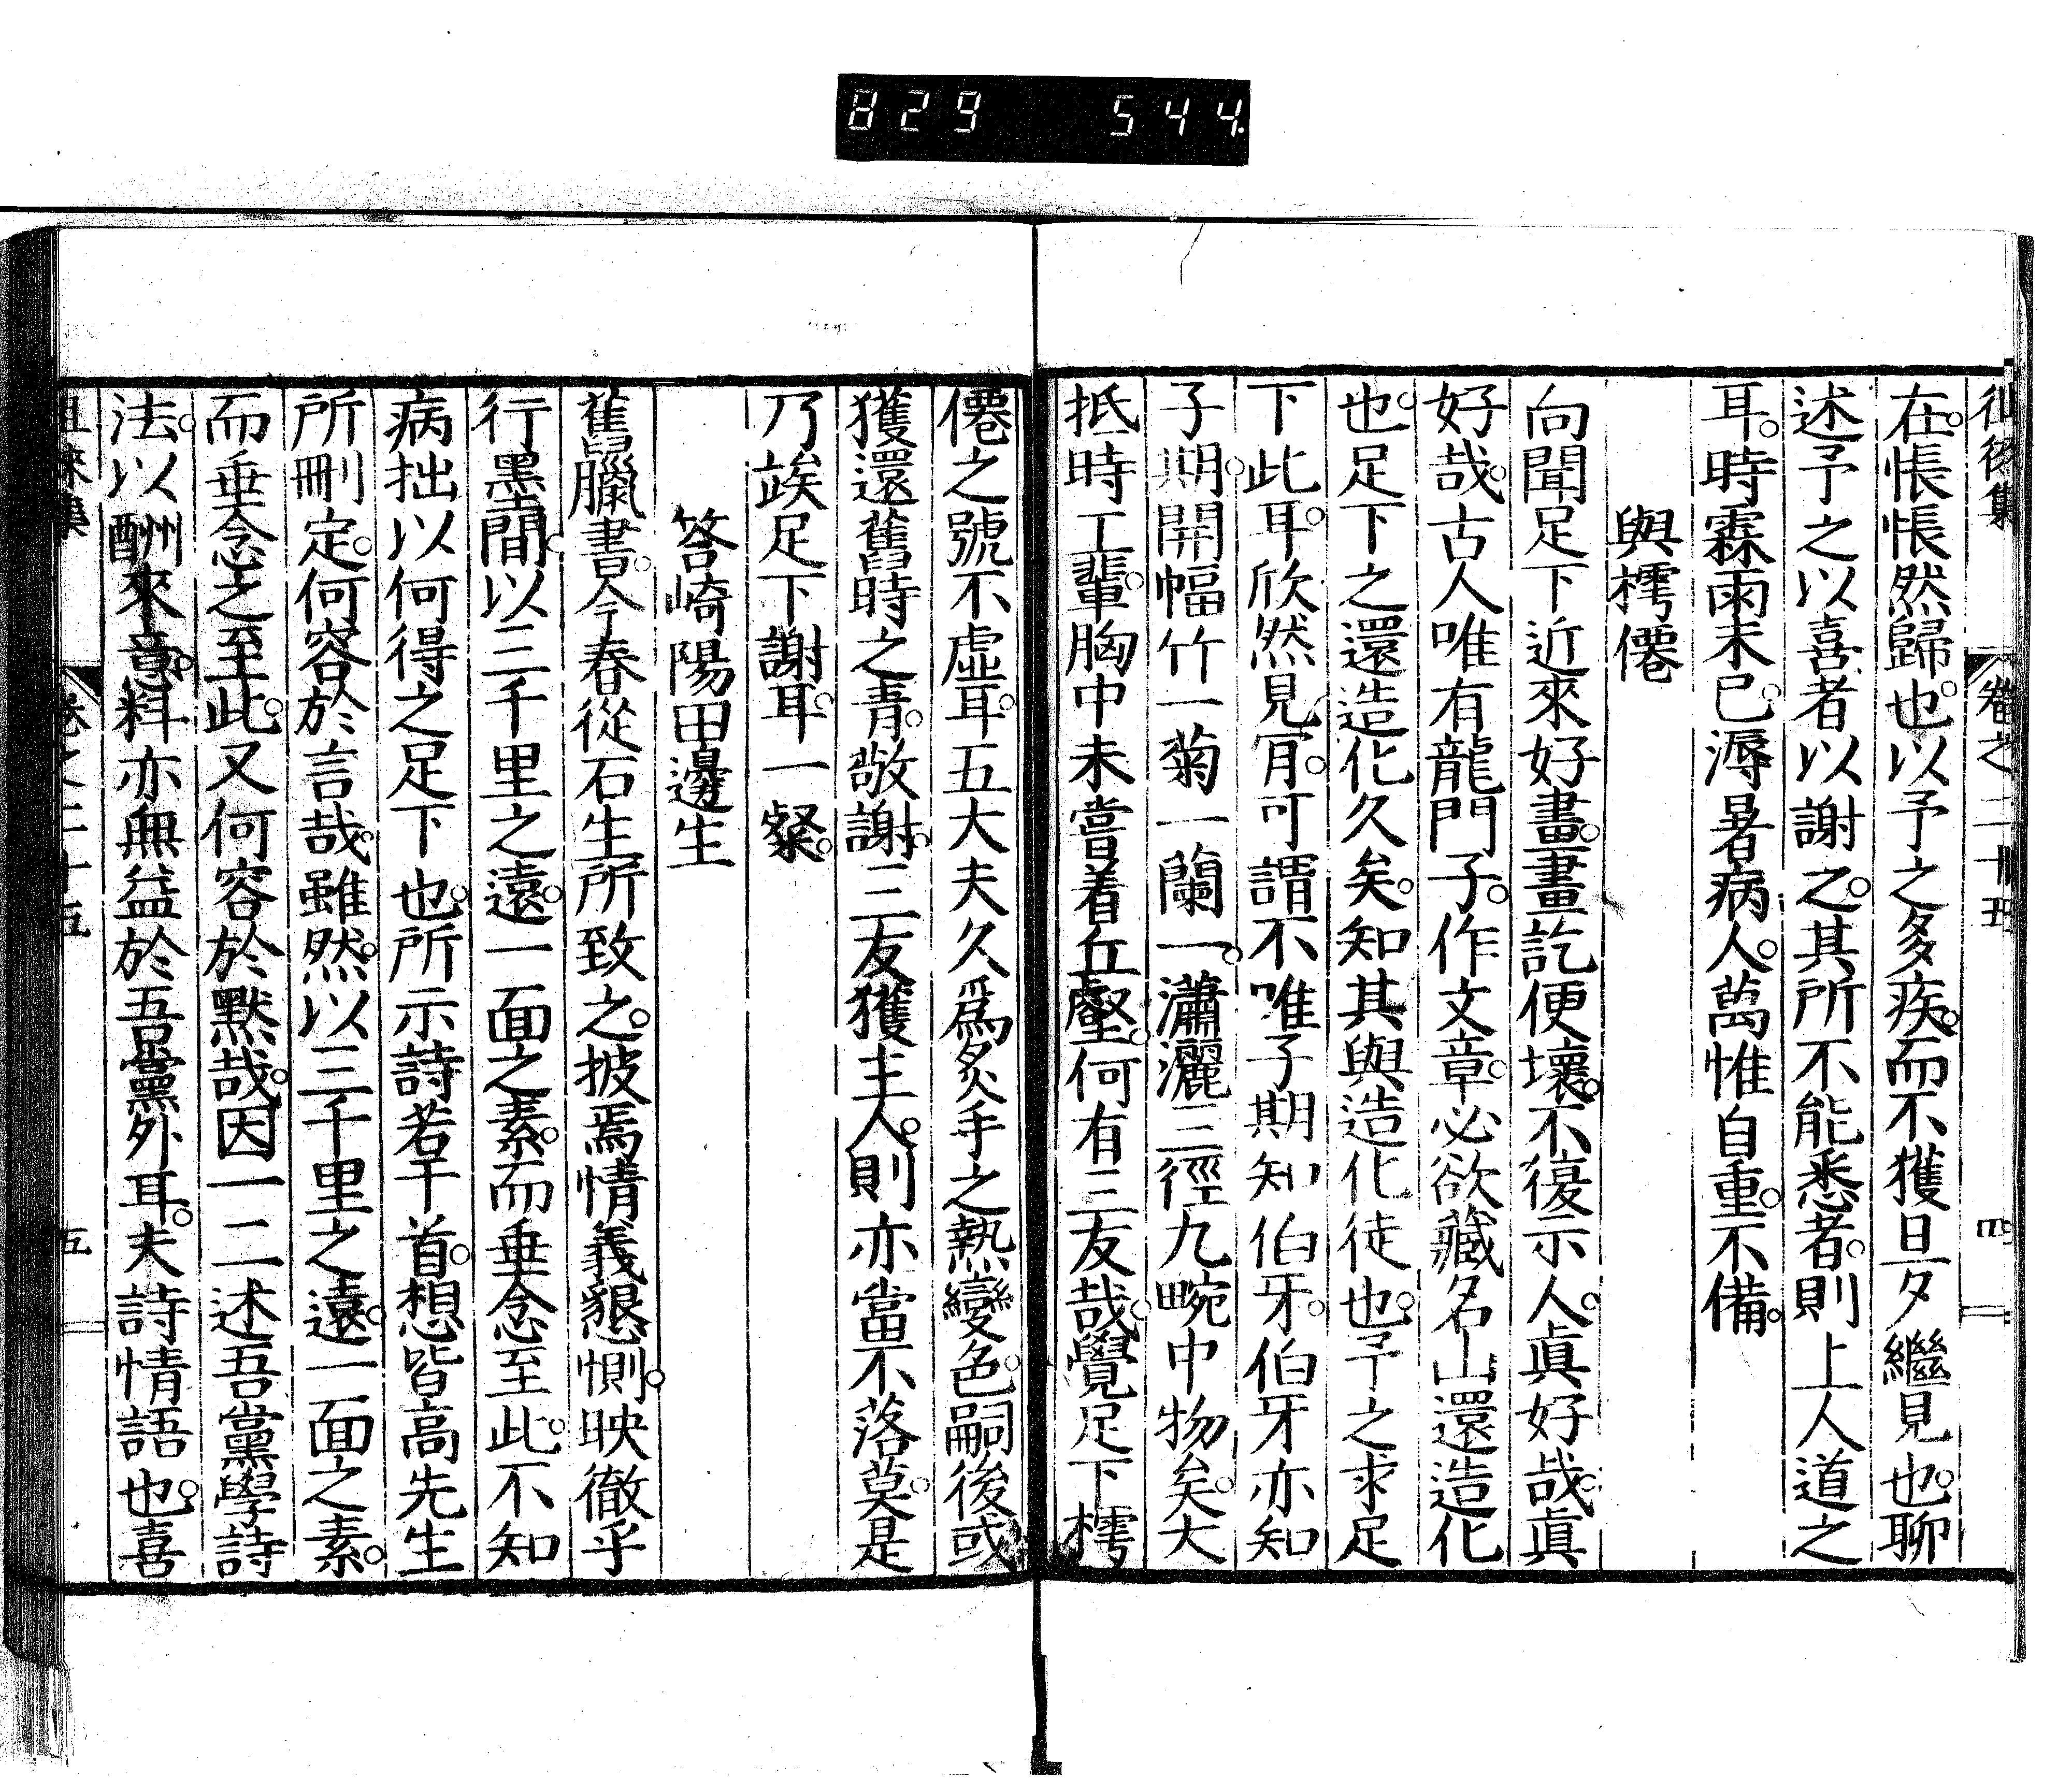 829 544
徂徠集 卷之二十五 四
在。悵悵然歸也。以予之多疾。而不獲旦夕繼見也。聊
述予之以喜者以謝之。其所不能悉者。則上人道之
耳。時霖雨未已。溽暑病人。萬惟自重。不備。
與樗僊
向聞足下近來好畫。畫訖便壞。不復示人。眞好哉。眞
好哉。古人唯有龍門子。作文章。必欲藏名山還造化
也。足下之還造化久矣。知其與造化徒也。予之求足
下此耳。欣然見肎。可謂不唯子期知伯牙。伯牙亦知
子期。開幅竹一菊一蘭一。瀟灑三徑九畹中物矣。大
抵時工輩。胸中未嘗着丘壑。何有三友哉。覺足下樗
僊之號不虛耳。五大夫久爲炙手之熱變色。嗣後或
獲還舊時之青。敬謝。三友獲主人。則亦當不落莫。是
乃竢足下謝耳。一粲。
答崎陽田邊生
舊臘書。今春從石生所致之。披焉情義懇惻。映徹乎
行墨間。以三千里之遠。一面之素。而垂念至此。不知
病拙以何得之足下也。所示詩若干首。想皆高先生
所刪定。何容於言哉。雖然。以三千里之遠。一面之素。
而垂念之至此。又何容於默哉。因一二述吾黨學詩
法。以酬來意。料亦無益於吾黨外耳。夫詩情語也。喜
徂徠集 卷之二十五 五